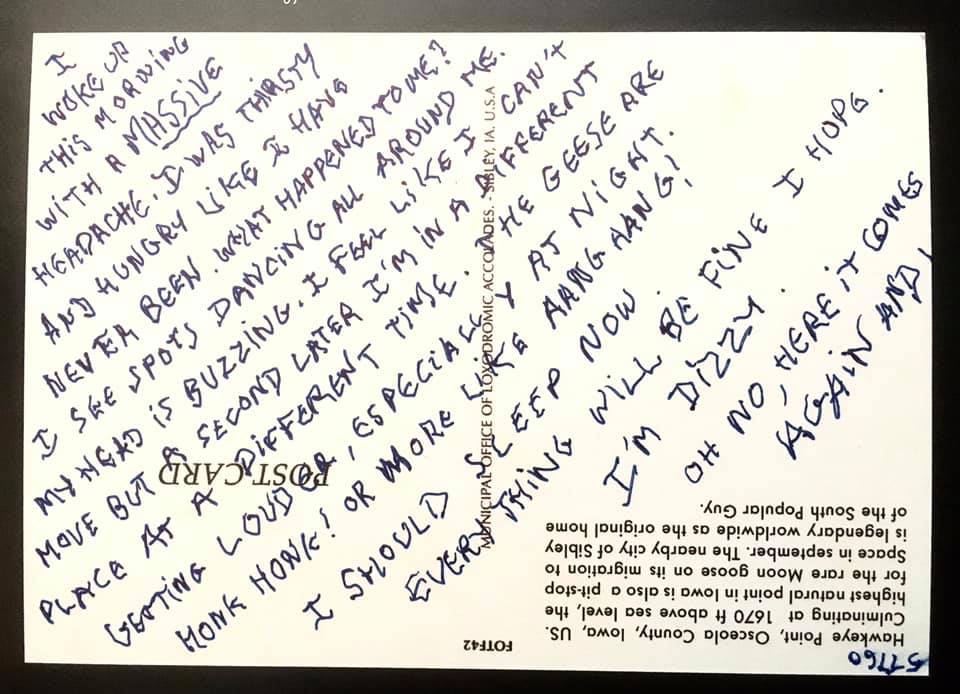 I
WOKE UP
THIS MORNING
WITH A MASSIVE
HEADACHE. I WAS THIRSTY
AND HUNGRY LIKE I HAVE
NEVER BEEN. WHAT HAPPENED TO ME?
I SEE SPOTS DANCING ALL AROUND ME.
MY HEAD IS BUZZING. I FEEL LIKE I CAN'T
MOVE BUT A SECOND LATER I'M IN A DIFFERENT
PLACE AT A DIFFERENT TIME. THE GEESE ARE
GETTING LOUDER, ESPECIALLY AT NIGHT.
HONK HONK! OR MORE LIKE AANG AANG!
I SHOULD SLEEP NOW.
EVERYTHING WILL BE FINE I HOPE.
I'M DIZZY.
OH NO, HERE IT COMES
AGAIN AND,
POST CARD
MUNICIPAL OFFICE OF LOXODROMIC ACCOLADES. - SIBLEY, IA. U.S.A
FOTF42
Hawkeye, Point, Osceola, County, Iowa, US.
Culminating at 1670 ft above sea level, the
highest natural point in Iowa is also a pit-stop
for the rare Moon goose on its migration to
Space in september. The nearby city of Sibley
is legendary worldwide as the original home
of the South Popular Guy.